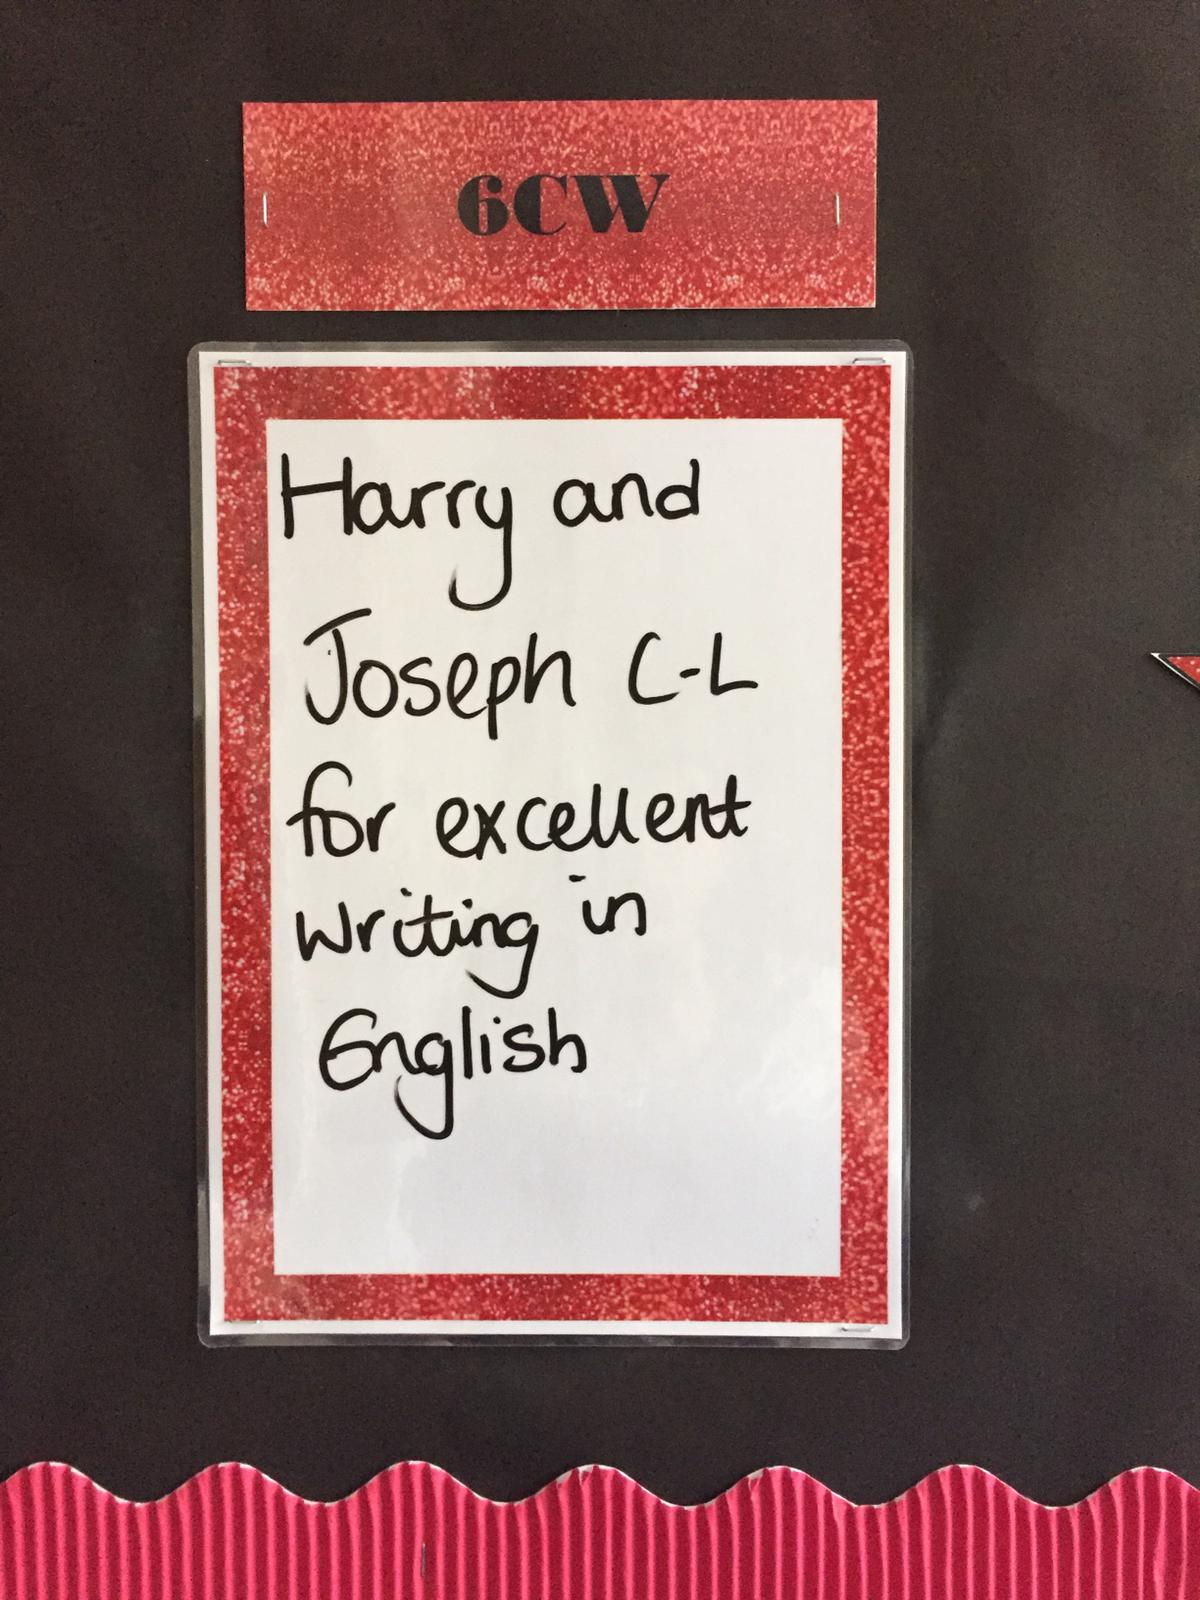 6CW
Harry and
Joseph C-L
for excellent
writing in
English